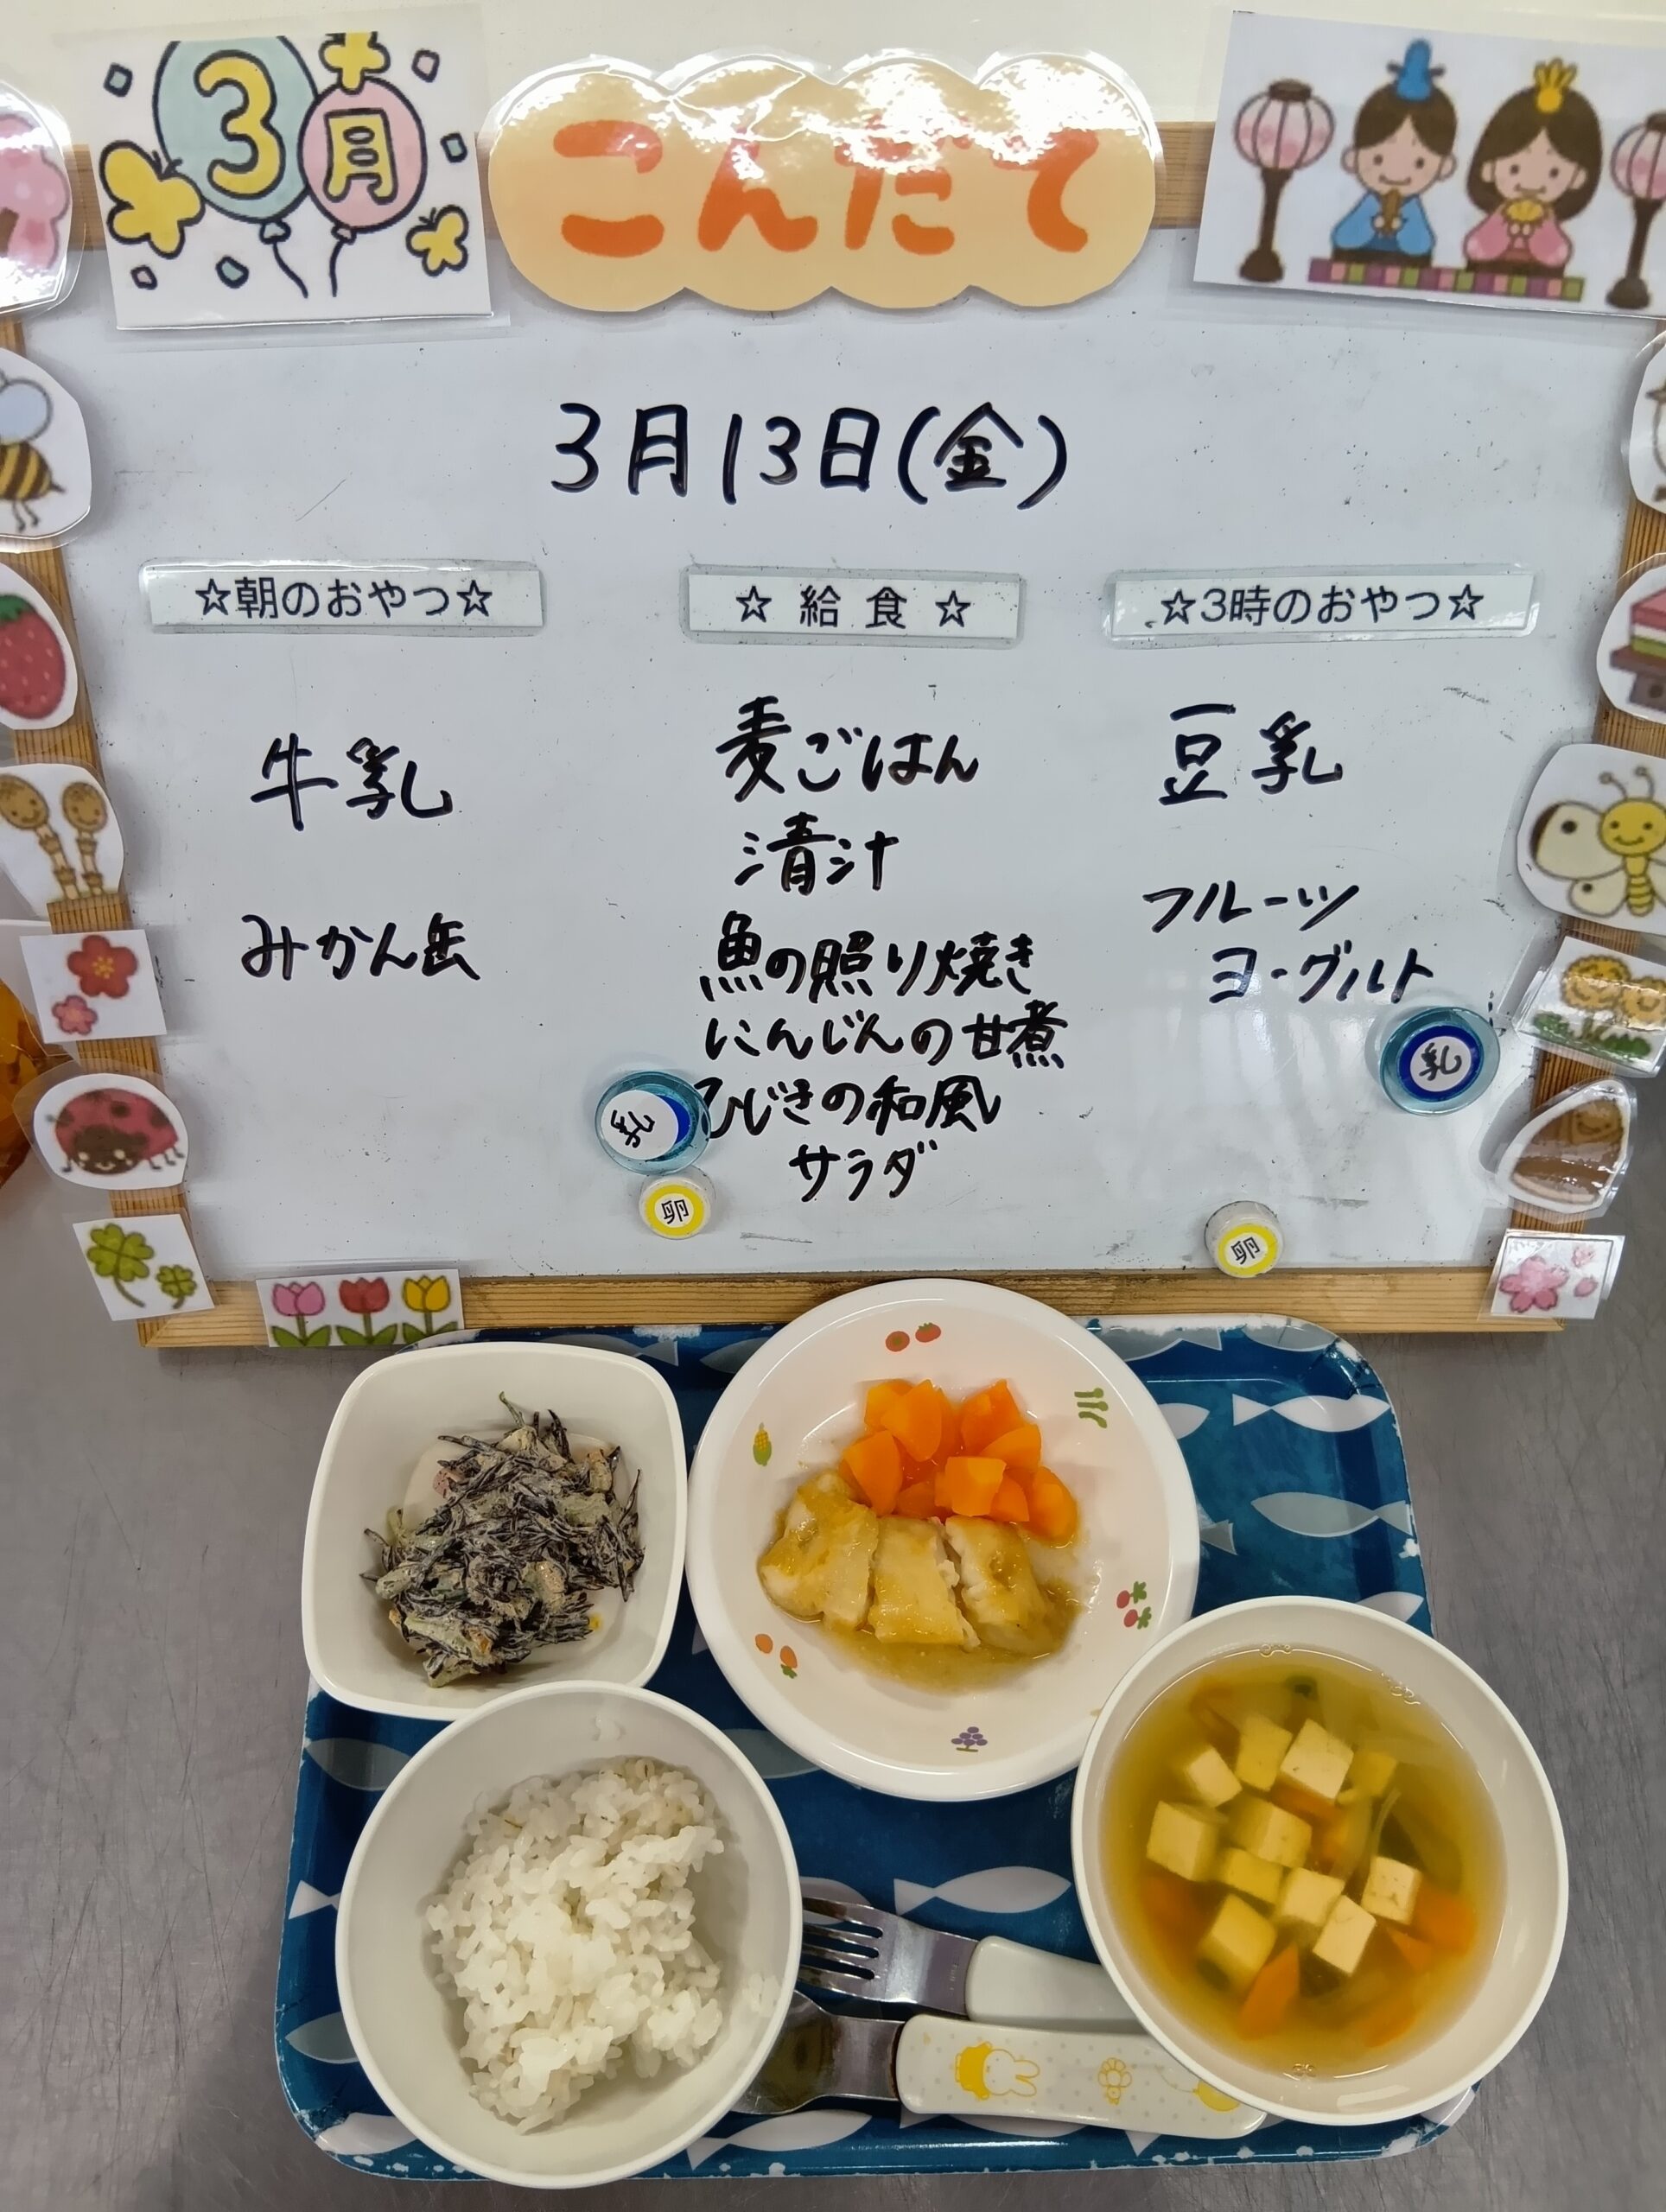 3月
こんだて
3月13日(金)
☆朝のおやつ☆
牛乳
みかん缶
☆給食☆
麦ごはん
清汁
魚の照り焼き
にんじんの甘煮
ひじきの和風
サラダ
乳
卵
☆3時のおやつ☆
豆乳
フルーツ
ヨーグルト
乳
卵